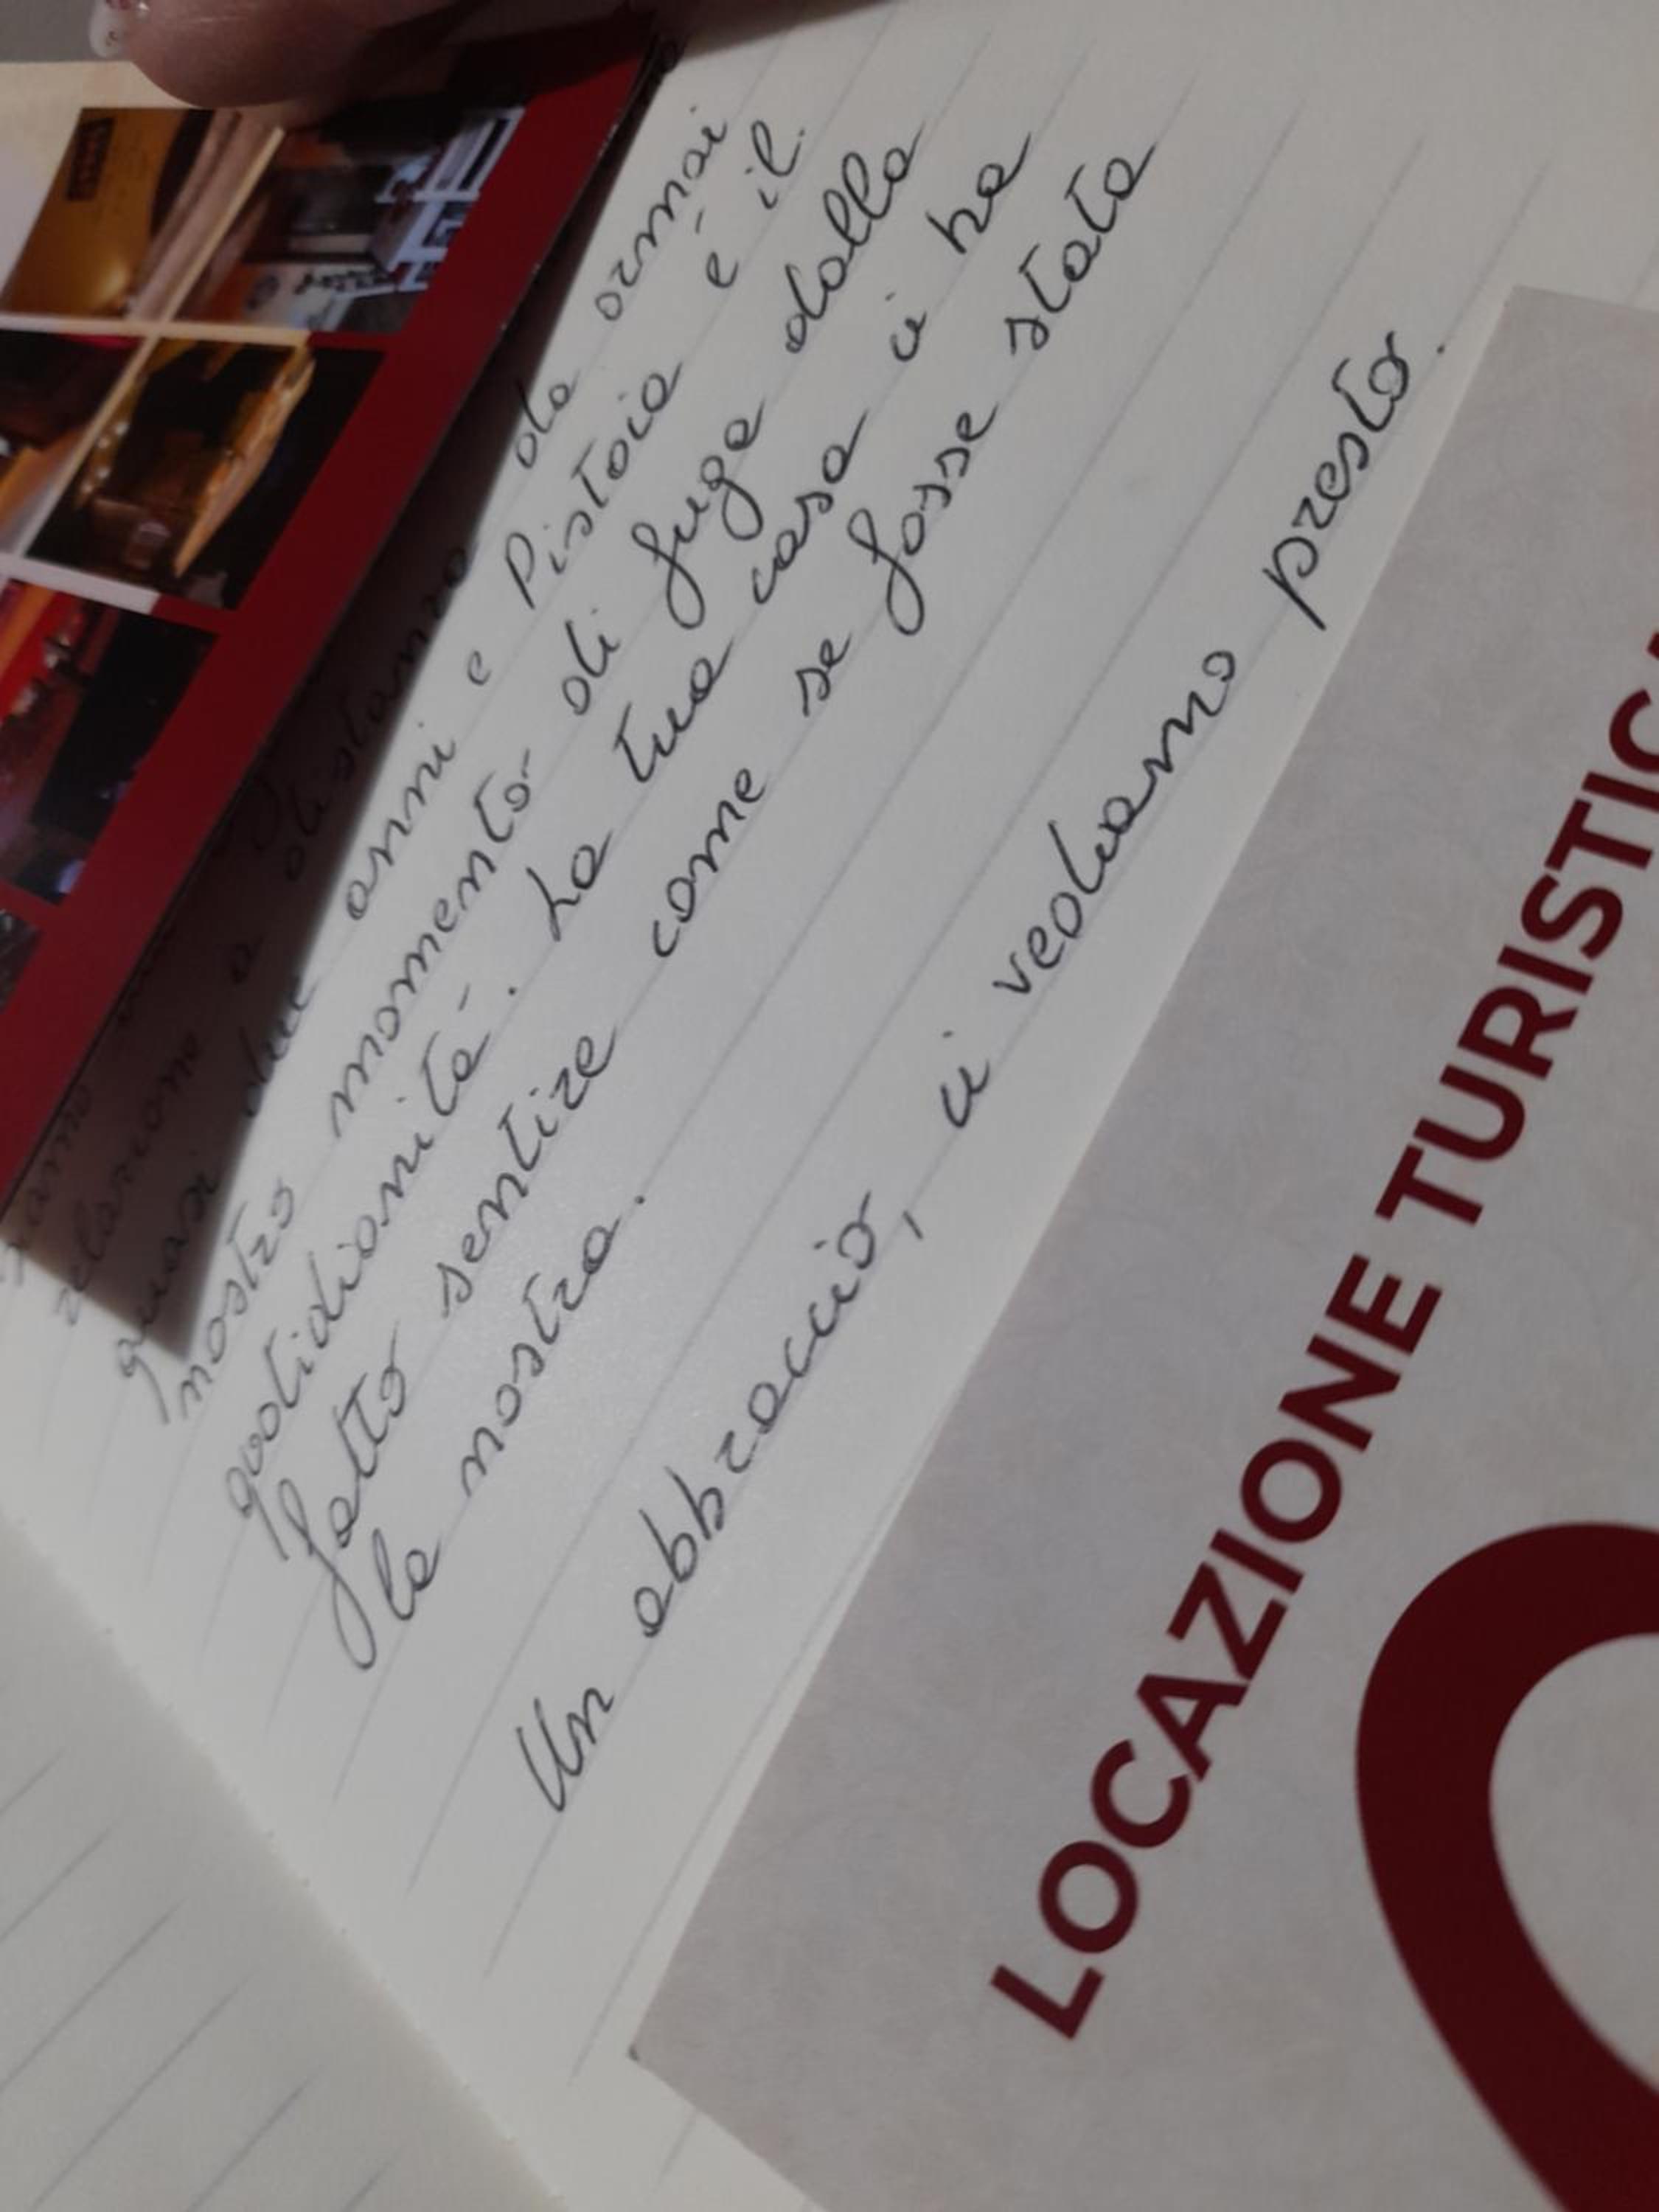 relazione a distanza da ormai
quasi due anni e Pistoia è il
nostro momento di fuga dalla
quotidianità. La tua casa ci ha
fatto sentire come se fosse stata
la nostra.
Un abbraccio, ci vediamo presto.
LOCAZIONE TURISTICA